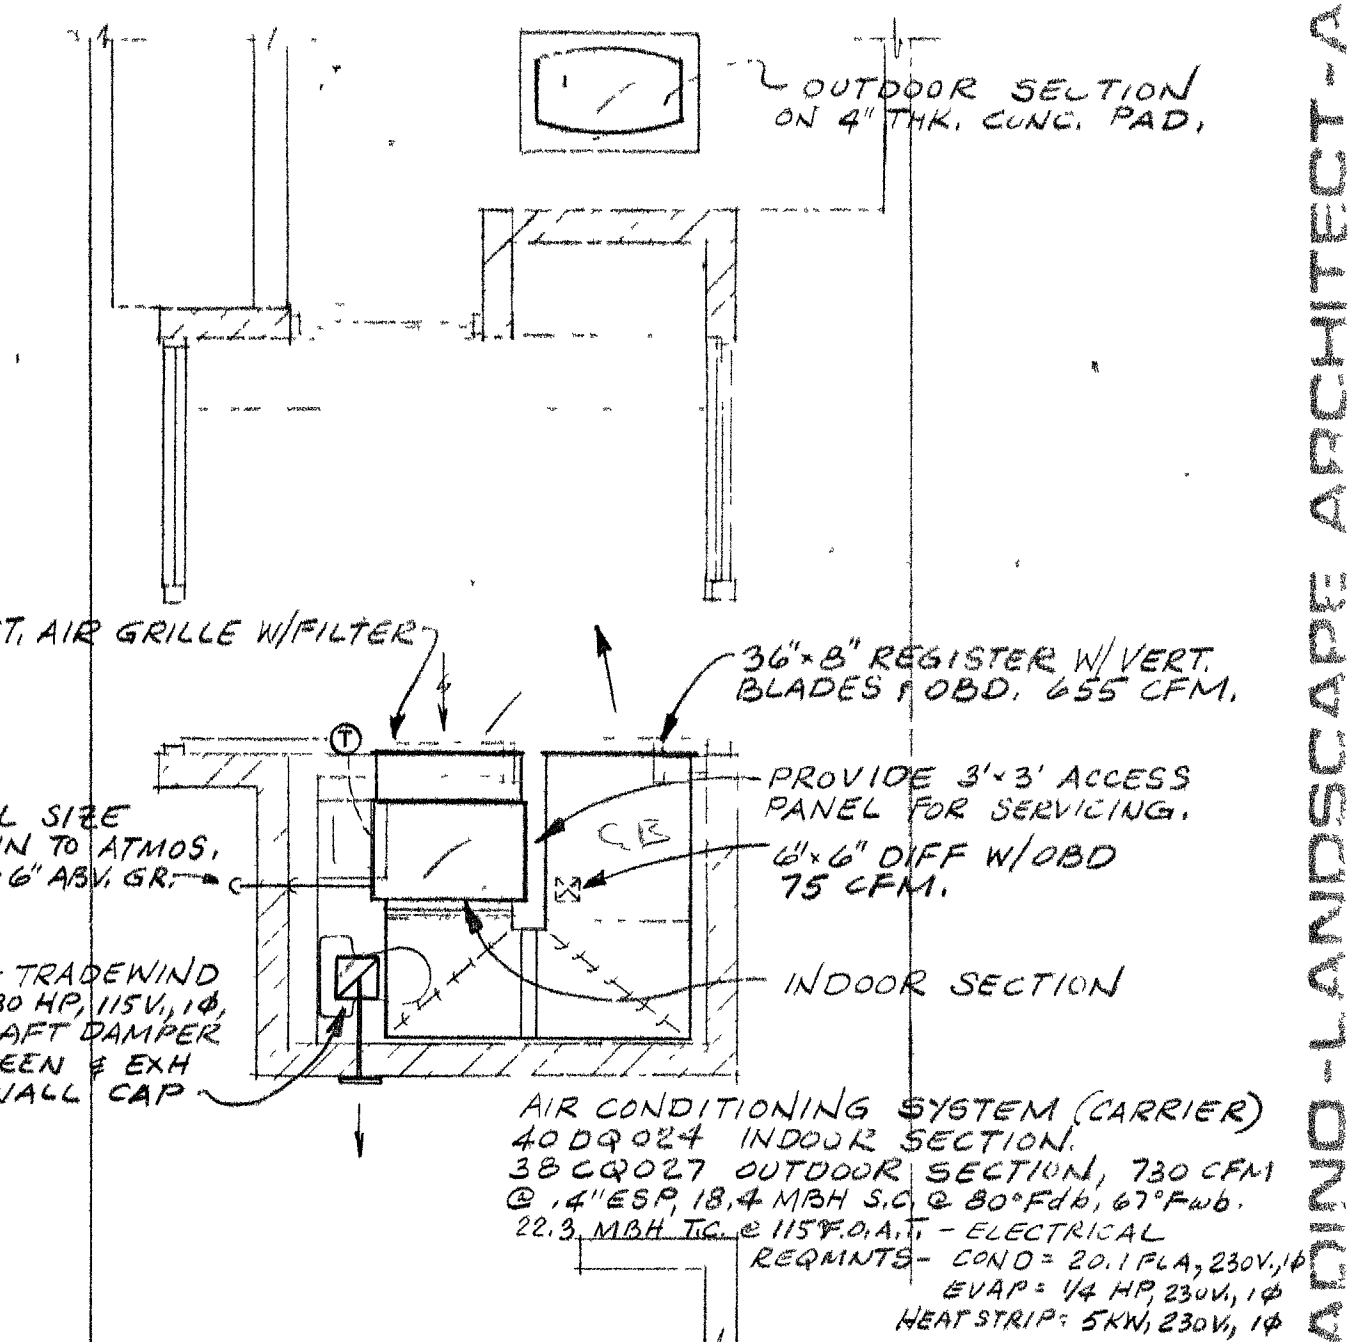 OUTDOOR SECTION
ON 4" THK. CONC. PAD.
T. AIR GRILLE W/FILTER
36"x8" REGISTER W/VERT.
BLADES & OBD. 655 CFM.
T
PROVIDE 3'x3' ACCESS
PANEL FOR SERVICING.
L SIZE
IN TO ATMOS.
6" ABV. GR.
6"x6" DIFF W/OBD
75 CFM.
TRADEWIND
30 HP, 115V., 1φ,
AFT DAMPER
EEN & EXH
WALL CAP
INDOOR SECTION
AIR CONDITIONING SYSTEM (CARRIER)
40DQ024 INDOOR SECTION.
38CQ027 OUTDOOR SECTION, 730 CFM
@ .4" ESP, 18.4 MBH S.C. @ 80°Fdb, 67°Fwb.
22.3 MBH T.C. @ 115°F.O.A.T. - ELECTRICAL
REQMNTS- COND = 20.1 FLA, 230V., 1φ
EVAP = 1/4 HP, 230V., 1φ
HEAT STRIP = 5KW, 230V., 1φ
ADINO-LANDSCAPE ARCHITECT-A